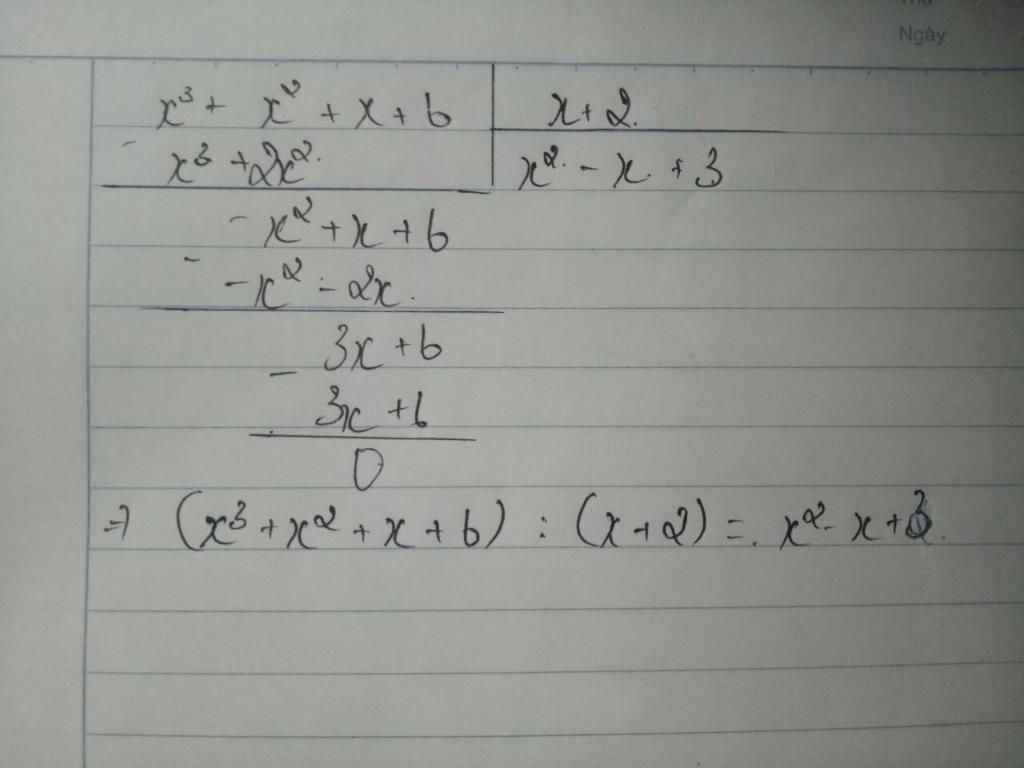 Ngày
x³ + x² + x + 6 | x + 2
- x³ + 2x² | x² - x + 3
-x² + x + 6
- -x² - 2x
3x + 6
- 3x + 6
0
=> (x³ + x² + x + 6) : (x + 2) = x² - x + 3